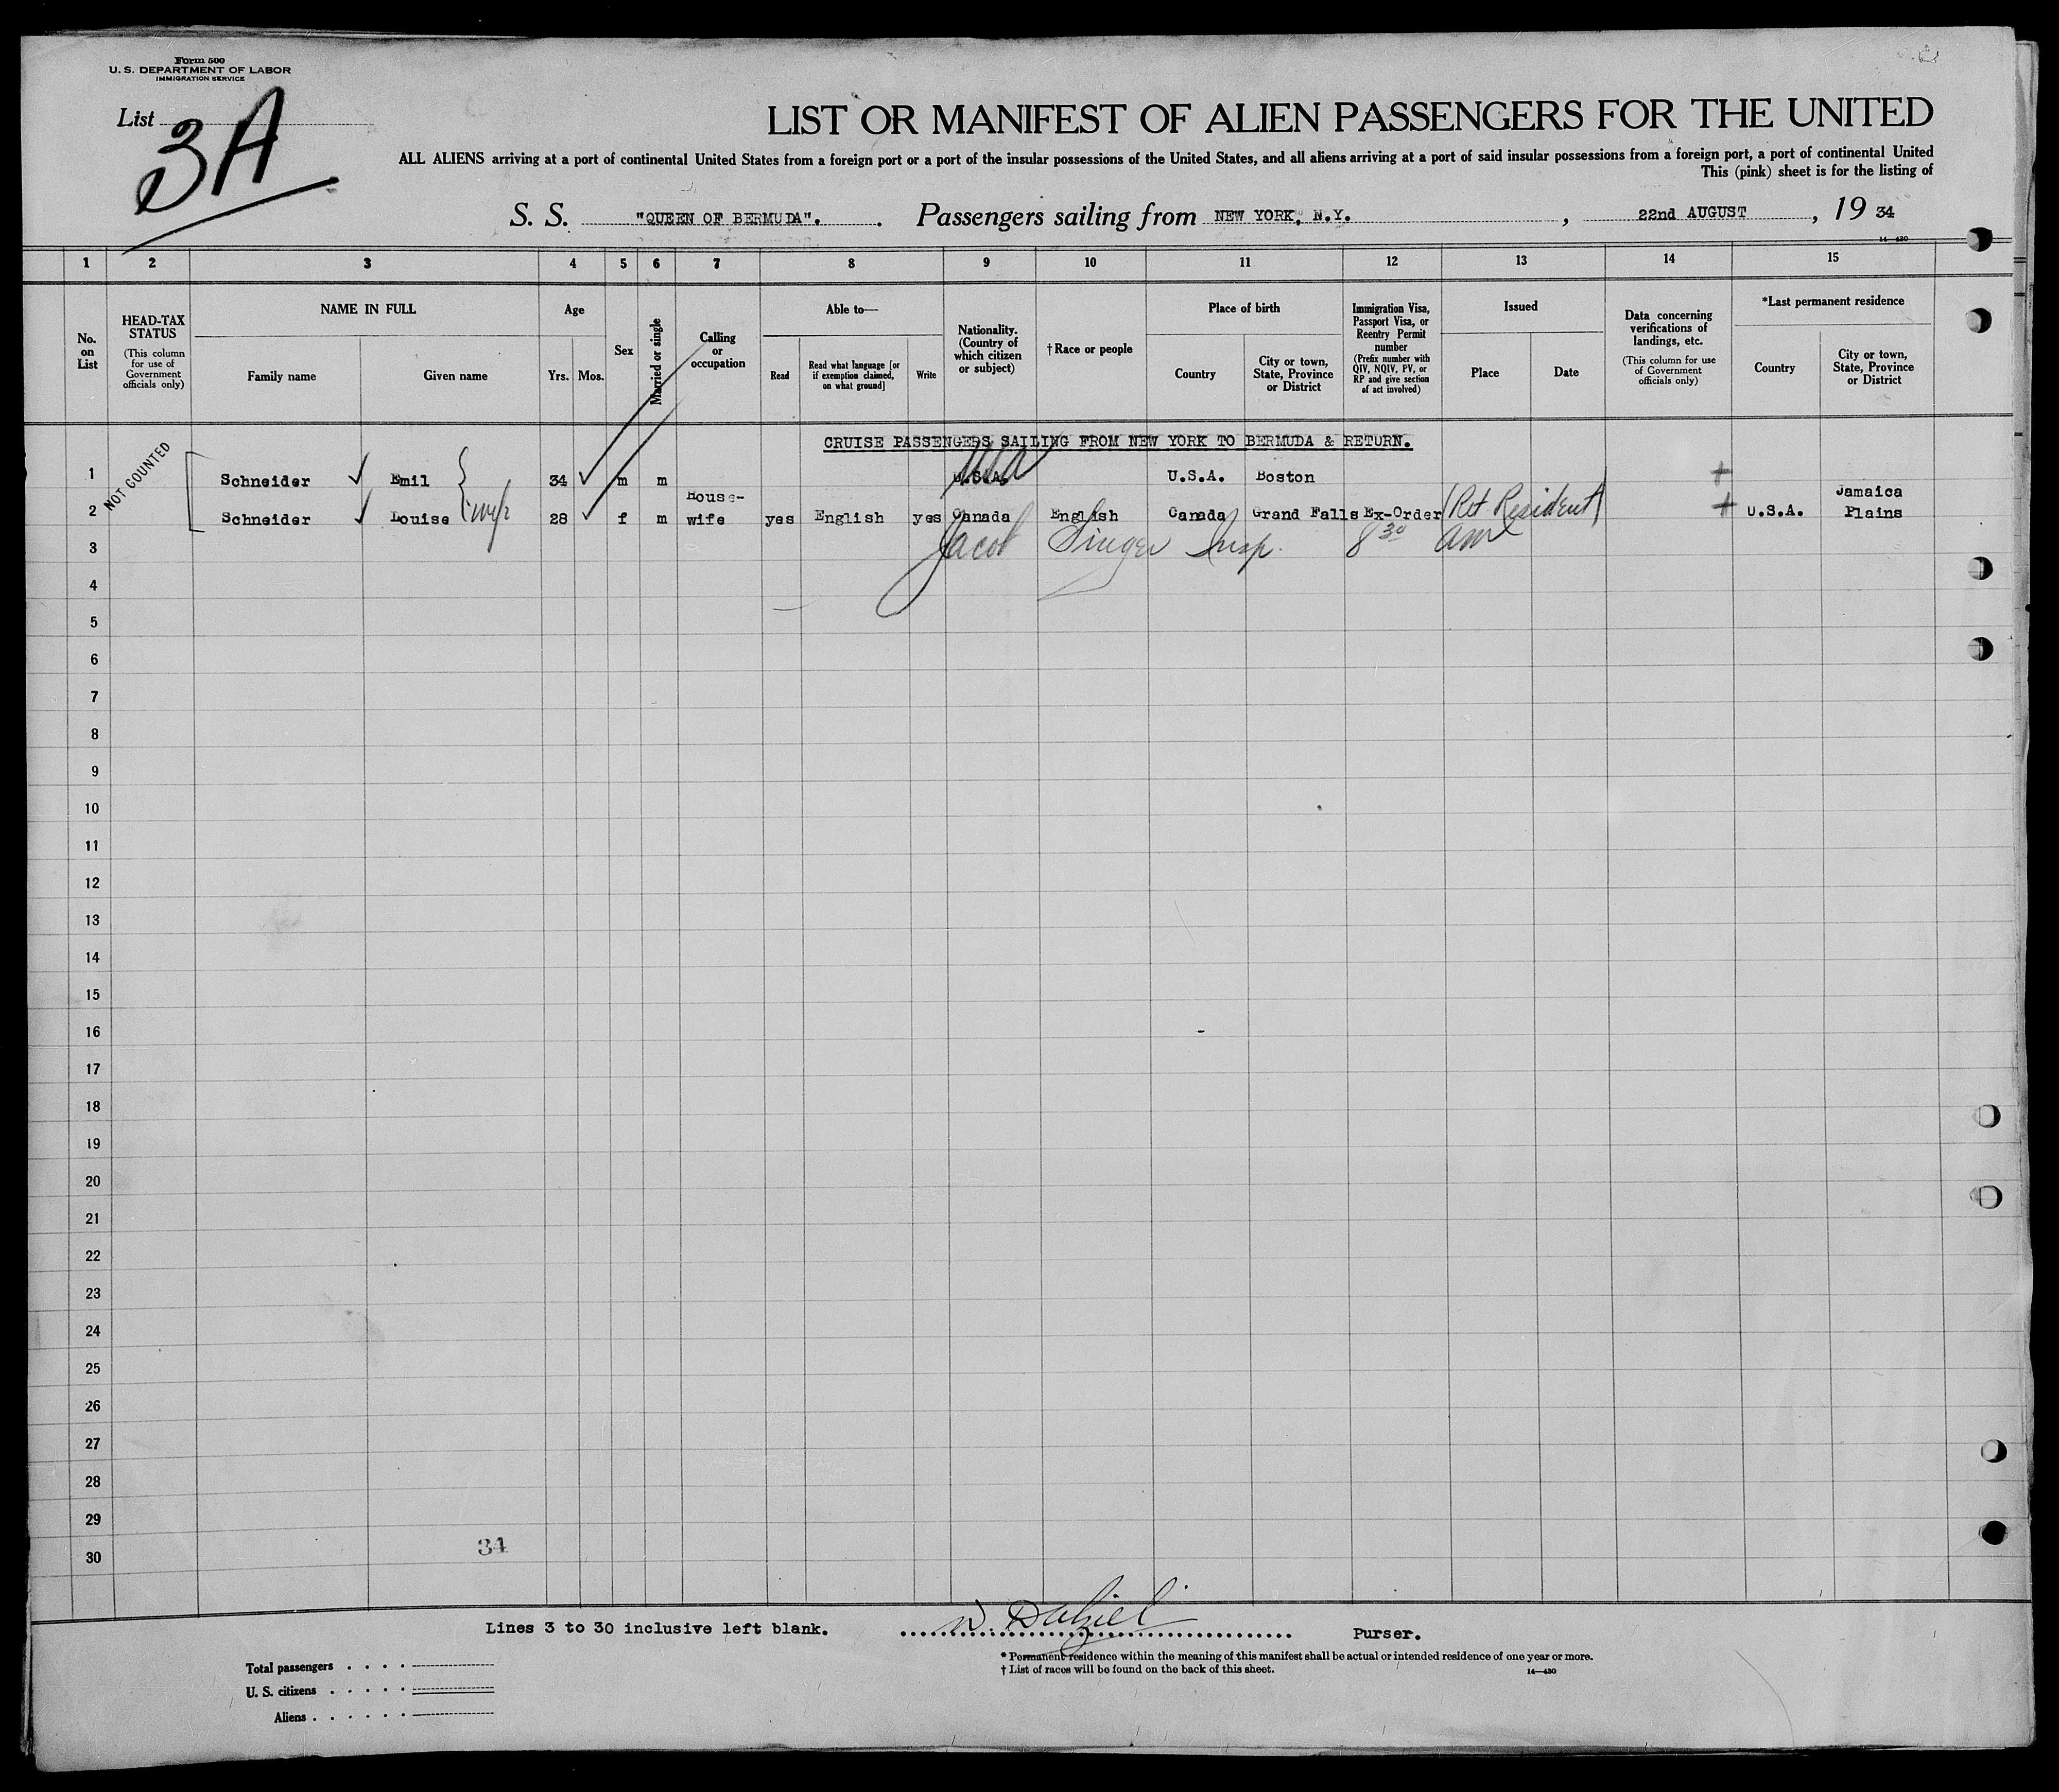 Form 500
U. S. DEPARTMENT OF LABOR
IMMIGRATION SERVICE
List
3A
LIST OR MANIFEST OF ALIEN PASSENGERS FOR THE UNITED
ALL ALIENS arriving at a port of continental United States from a foreign port or a port of the insular possessions of the United States, and all aliens arriving at a port of said insular possessions from a foreign port, a port of continental United
This (pink) sheet is for the listing of
S. S. "QUEEN OF BERMUDA". Passengers sailing from NEW YORK, N.Y. , 22nd AUGUST , 19 34
14—430
1 2 3 4 5 6 7 8 9 10 11 12 13 14 15
No. on List
HEAD-TAX STATUS
(This column for use of Government officials only)
NAME IN FULL
Family name
Given name
Age
Yrs. Mos.
Sex
Married or single
Calling or occupation
Able to—
Read
Read what language [or if exemption claimed, on what ground]
Write
Nationality. (Country of which citizen or subject)
†Race or people
Place of birth
Country
City or town, State, Province or District
Immigration Visa, Passport Visa, or Reentry Permit number
(Prefix number with QIV, NQIV, PV, or RP and give section of act involved)
Issued
Place
Date
Data concerning verifications of landings, etc.
(This column for use of Government officials only)
*Last permanent residence
Country
City or town, State, Province or District
CRUISE PASSENGERS SAILING FROM NEW YORK TO BERMUDA & RETURN.
NOT COUNTED
1 Schneider Emil 34 m m U.S.A. USA U.S.A. Boston
2 Schneider Louise wife 28 f m House-wife yes English yes Canada English Canada Grand Falls Ex-Order (Ret Resident) U.S.A. Jamaica Plains
3 Jacob Singer Insp. 8 30 am
4
5
6
7
8
9
10
11
12
13
14
15
16
17
18
19
20
21
22
23
24
25
26
27
28
29
30
34
Lines 3 to 30 inclusive left blank. W. Dalziel Purser.
Total passengers
U. S. citizens
Aliens
* Permanent residence within the meaning of this manifest shall be actual or intended residence of one year or more.
† List of races will be found on the back of this sheet.
14—430